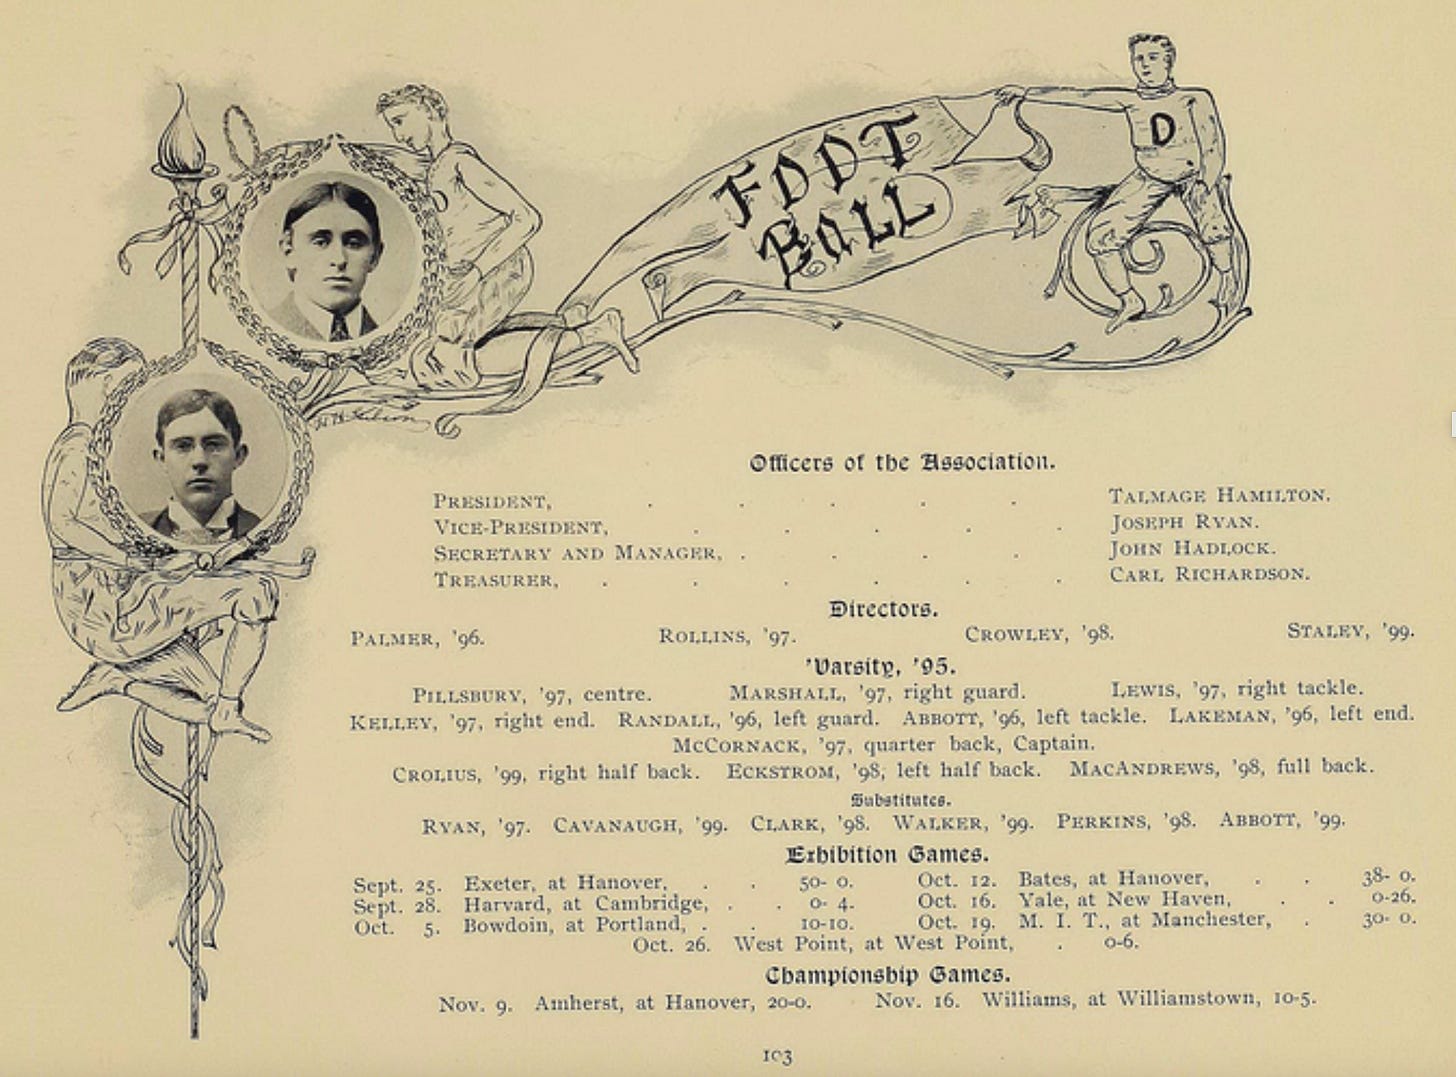 FOOT
BALL
D
Officers of the Association.
PRESIDENT, . . . . . TALMAGE HAMILTON.
VICE-PRESIDENT, . . . . . JOSEPH RYAN.
SECRETARY AND MANAGER, . . . . JOHN HADLOCK.
TREASURER, . . . . . . CARL RICHARDSON.
Directors.
PALMER, '96. ROLLINS, '97. CROWLEY, '98. STALEY, '99.
'Varsity, '95.
PILLSBURY, '97, centre. MARSHALL, '97, right guard. LEWIS, '97, right tackle.
KELLEY, '97, right end. RANDALL, '96, left guard. ABBOTT, '96, left tackle. LAKEMAN, '96, left end.
MCCORNACK, '97, quarter back, Captain.
CROLIUS, '99, right half back. ECKSTROM, '98, left half back. MACANDREWS, '98, full back.
Substitutes.
RYAN, '97. CAVANAUGH, '99. CLARK, '98. WALKER, '99. PERKINS, '98. ABBOTT, '99.
Exhibition Games.
Sept. 25. Exeter, at Hanover, . . 50- 0. Oct. 12. Bates, at Hanover, . . 38- 0.
Sept. 28. Harvard, at Cambridge, . . 0- 4. Oct. 16. Yale, at New Haven, . . 0-26.
Oct. 5. Bowdoin, at Portland, . . 10-10. Oct. 19. M. I. T., at Manchester, . 30- 0.
Oct. 26. West Point, at West Point, . 0-6.
Championship Games.
Nov. 9. Amherst, at Hanover, 20-0. Nov. 16. Williams, at Williamstown, 10-5.
103